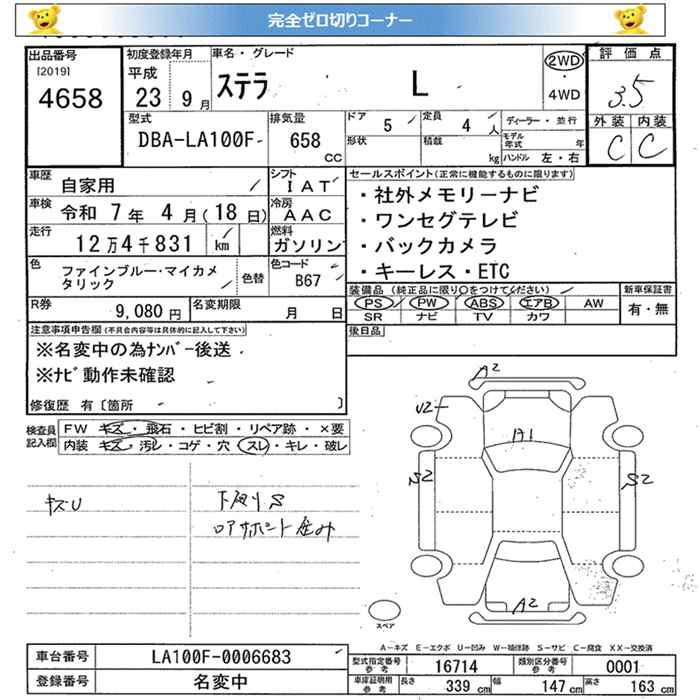 完全ゼロ切りコーナー
出品番号 初度登録年月 車名・グレード 評価点
[2019] 平成 ステラ L 2WD・4WD 3.5
4658 23年 9月 外装 内装
型式 排気量 ドア 5 定員 4人 ディーラー・並行 C C
DBA-LA100F 658CC 形状 積載 kg モデル年式 年
ハンドル 左・右
車歴 自家用 シフト IAT セールスポイント(正常に機能するものに限ります)
車検 令和 7年 4月(18日) 冷房 AAC ・社外メモリーナビ
走行 12万4千831 km 燃料 ガソリン ・ワンセグテレビ
・バックカメラ
色 ファインブルー・マイカメタリック 色替 色コード B67 ・キーレス・ETC
R券 9,080円 名変期限 月 日 装備品(純正品に限り○をつけてください) 新車保証書
PS PW ABS エアB AW 有・無
SR ナビ TV カワ
注意事項申告欄(不具合内容等は具体的に記入して下さい) 後日品
※名変中の為ナンバー後送
※ナビ動作未確認
修復歴 有〔箇所 〕
検査員記入欄 FW キズ・飛石・ヒビ割・リペア跡・×要
内装 キズ・汚レ・コゲ・穴・スレ・キレ・破レ
キズU 下廻りS
A2
U2
A1
S2 S2
A2
スペア
A-キズ E-エクボ U-凹み W-補修跡 S-サビ C-腐食 XX-交換済
車台番号 LA100F-0006683 型式指定番号 参考 16714 類別区分番号 参考 0001
登録番号 名変中 車庫証明用 参考 長さ 339cm 幅 147cm 高さ 163cm